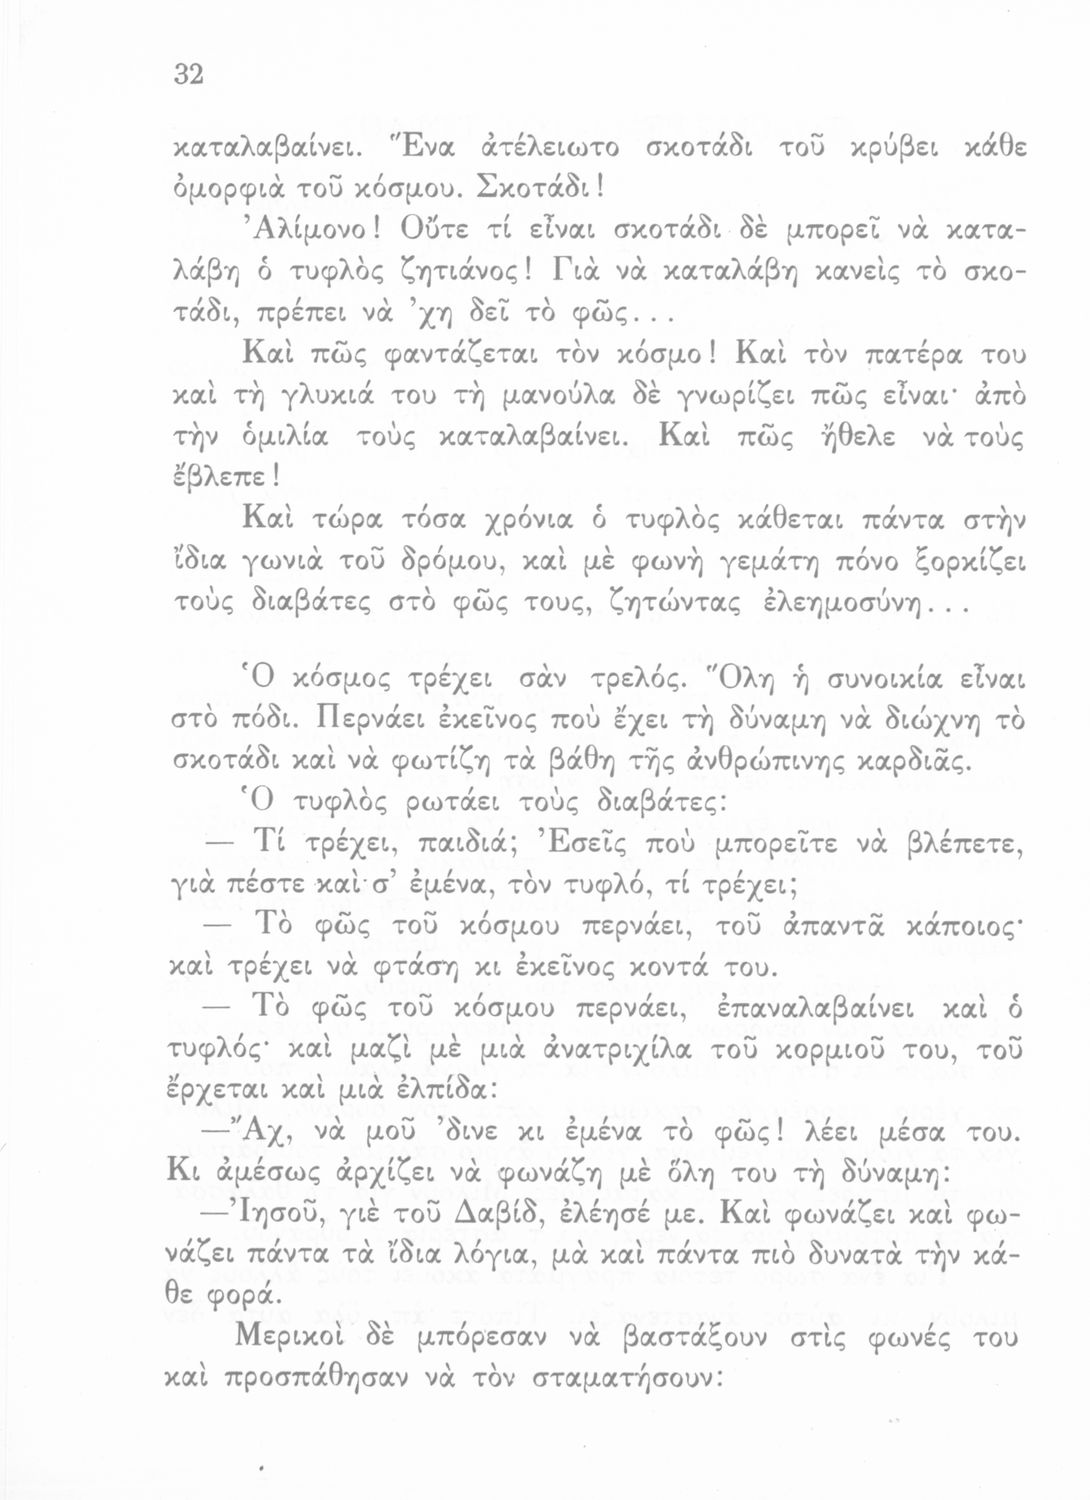 32
καταλαβαίνει. Ἕνα ἀτέλειωτο σκοτάδι τοῦ κρύβει κάθε
ὀμορφιὰ τοῦ κόσμου. Σκοτάδι!
Ἀλίμονο! Οὔτε τί εἶναι σκοτάδι δὲ μπορεῖ νὰ κατα-
λάβῃ ὁ τυφλὸς ζητιάνος! Γιὰ νὰ καταλάβῃ κανεὶς τὸ σκο-
τάδι, πρέπει νὰ ’χῃ δεῖ τὸ φῶς...
Καὶ πῶς φαντάζεται τὸν κόσμο! Καὶ τὸν πατέρα του
καὶ τὴ γλυκιά του τὴ μανούλα δὲ γνωρίζει πῶς εἶναι· ἀπὸ
τὴν ὁμιλία τοὺς καταλαβαίνει. Καὶ πῶς ἤθελε νὰ τοὺς
ἔβλεπε!
Καὶ τώρα τόσα χρόνια ὁ τυφλὸς κάθεται πάντα στὴν
ἴδια γωνιὰ τοῦ δρόμου, καὶ μὲ φωνὴ γεμάτη πόνο ξορκίζει
τοὺς διαβάτες στὸ φῶς τους, ζητώντας ἐλεημοσύνη...
Ὁ κόσμος τρέχει σὰν τρελός. Ὅλη ἡ συνοικία εἶναι
στὸ πόδι. Περνάει ἐκεῖνος ποὺ ἔχει τὴ δύναμη νὰ διώχνη τὸ
σκοτάδι καὶ νὰ φωτίζη τὰ βάθη τῆς ἀνθρώπινης καρδιᾶς.
Ὁ τυφλὸς ρωτάει τοὺς διαβάτες:
— Τί τρέχει, παιδιά; Ἐσεῖς ποὺ μπορεῖτε νὰ βλέπετε,
γιὰ πέστε καὶ σ’ ἐμένα, τὸν τυφλό, τί τρέχει;
— Τὸ φῶς τοῦ κόσμου περνάει, τοῦ ἀπαντᾶ κάποιος·
καὶ τρέχει νὰ φτάση κι ἐκεῖνος κοντά του.
— Τὸ φῶς τοῦ κόσμου περνάει, ἐπαναλαβαίνει καὶ ὁ
τυφλός· καὶ μαζὶ μὲ μιὰ ἀνατριχίλα τοῦ κορμιοῦ του, τοῦ
ἔρχεται καὶ μιὰ ἐλπίδα:
—Ἄχ, νὰ μοῦ ’δινε κι ἐμένα τὸ φῶς! λέει μέσα του.
Κι ἀμέσως ἀρχίζει νὰ φωνάζη μὲ ὅλη του τὴ δύναμη:
—Ἰησοῦ, γιὲ τοῦ Δαβίδ, ἐλέησέ με. Καὶ φωνάζει καὶ φω-
νάζει πάντα τὰ ἴδια λόγια, μὰ καὶ πάντα πιὸ δυνατὰ τὴν κά-
θε φορά.
Μερικοὶ δὲ μπόρεσαν νὰ βαστάξουν στὶς φωνές του
καὶ προσπάθησαν νὰ τὸν σταματήσουν: